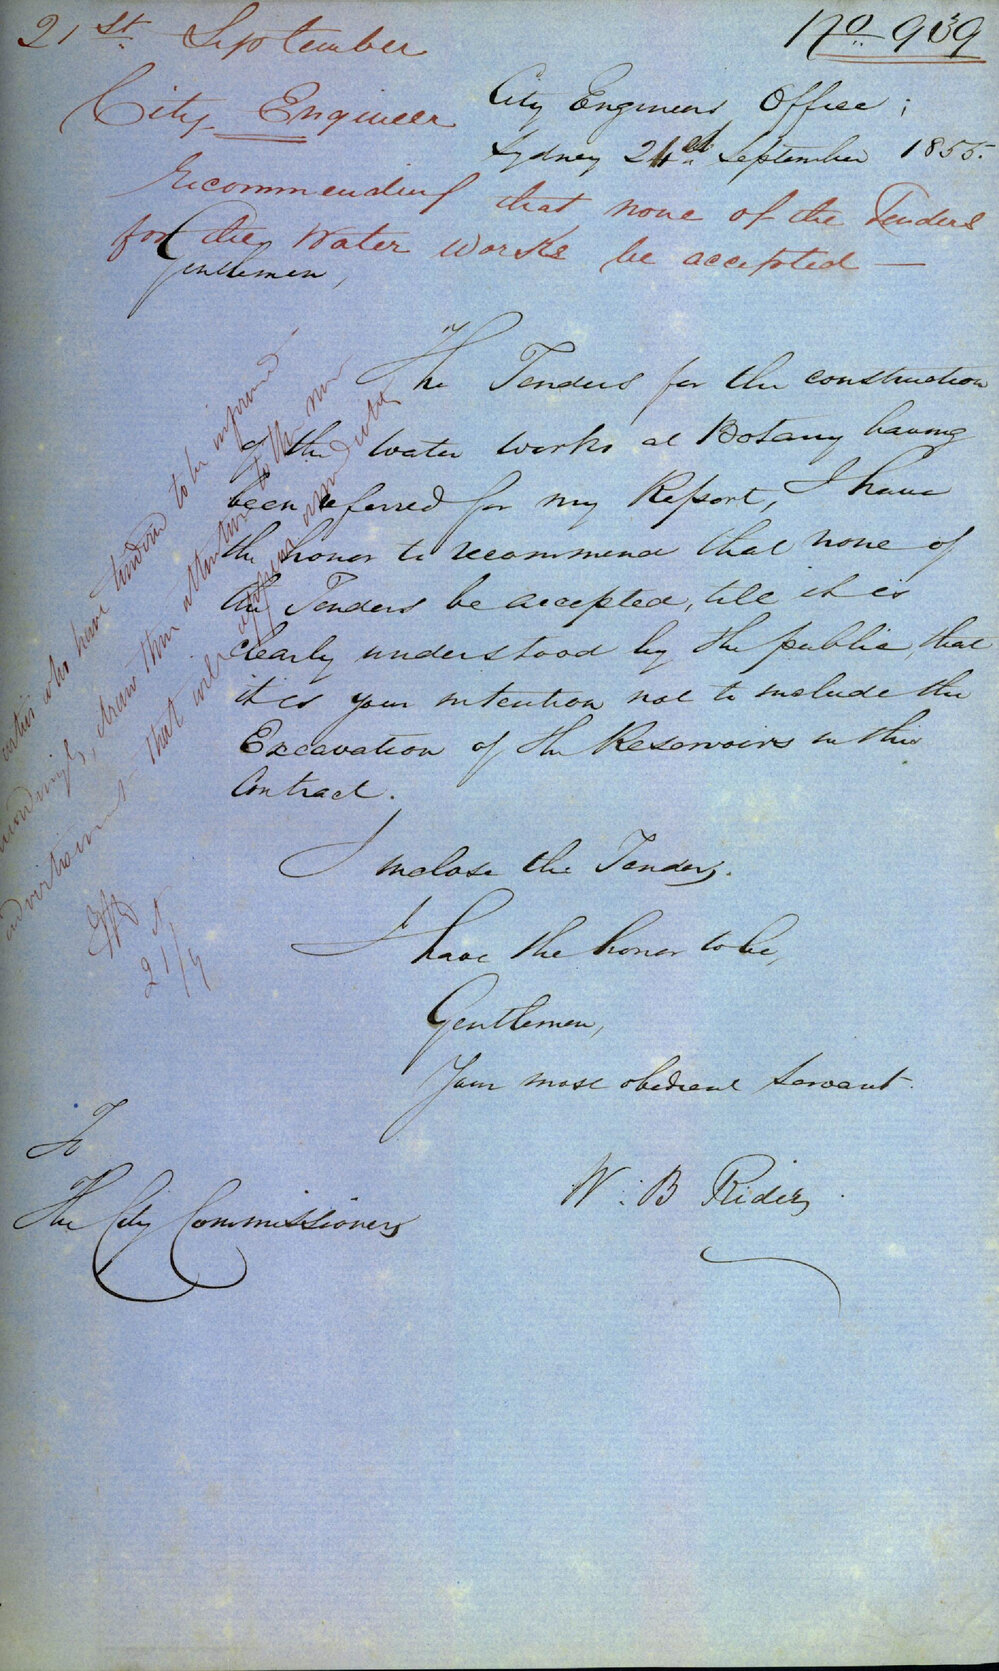 21st September
No 939
City Engineer
City Engineers Office;
Sydney 21st September 1855.
Recommending that none of the Tenders
for the Water Works be accepted —
Gentlemen,
The Tenders for the construction
of the water works at Botany having
been referred for my Report, I have
the honor to recommend that none of
the Tenders be accepted, till it is
clearly understood by the public, that
it is your intention not to include the
Excavation of the Reservoirs in this
Contract.
I inclose the Tenders.
I have the honor to be,
Gentlemen,
Your most obedient servant.
W. B Rider
To
The City Commissioners
who have tendered to be informed
draw their attention to the new
advertisement that will appear
21/9